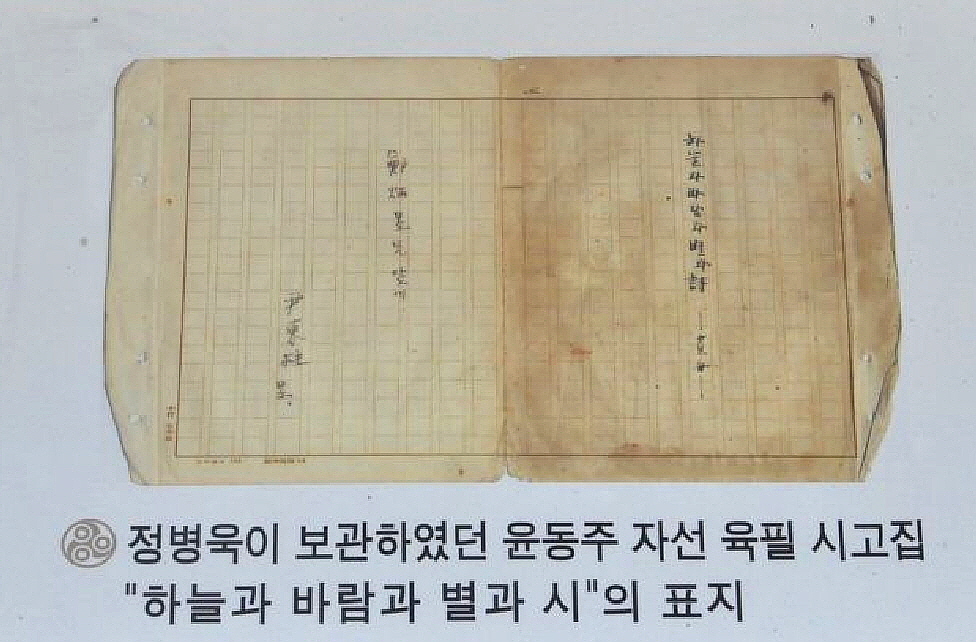 하늘과바람과별과詩
鄭炳昱兄앞에
尹東柱
정병욱이 보관하였던 윤동주 자선 육필 시고집
"하늘과 바람과 별과 시"의 표지